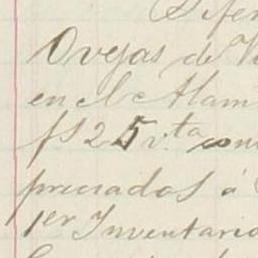 Difer
Ovejas de V
en el Alam
fs 25 v.ta con
preciados á
1er Inventario